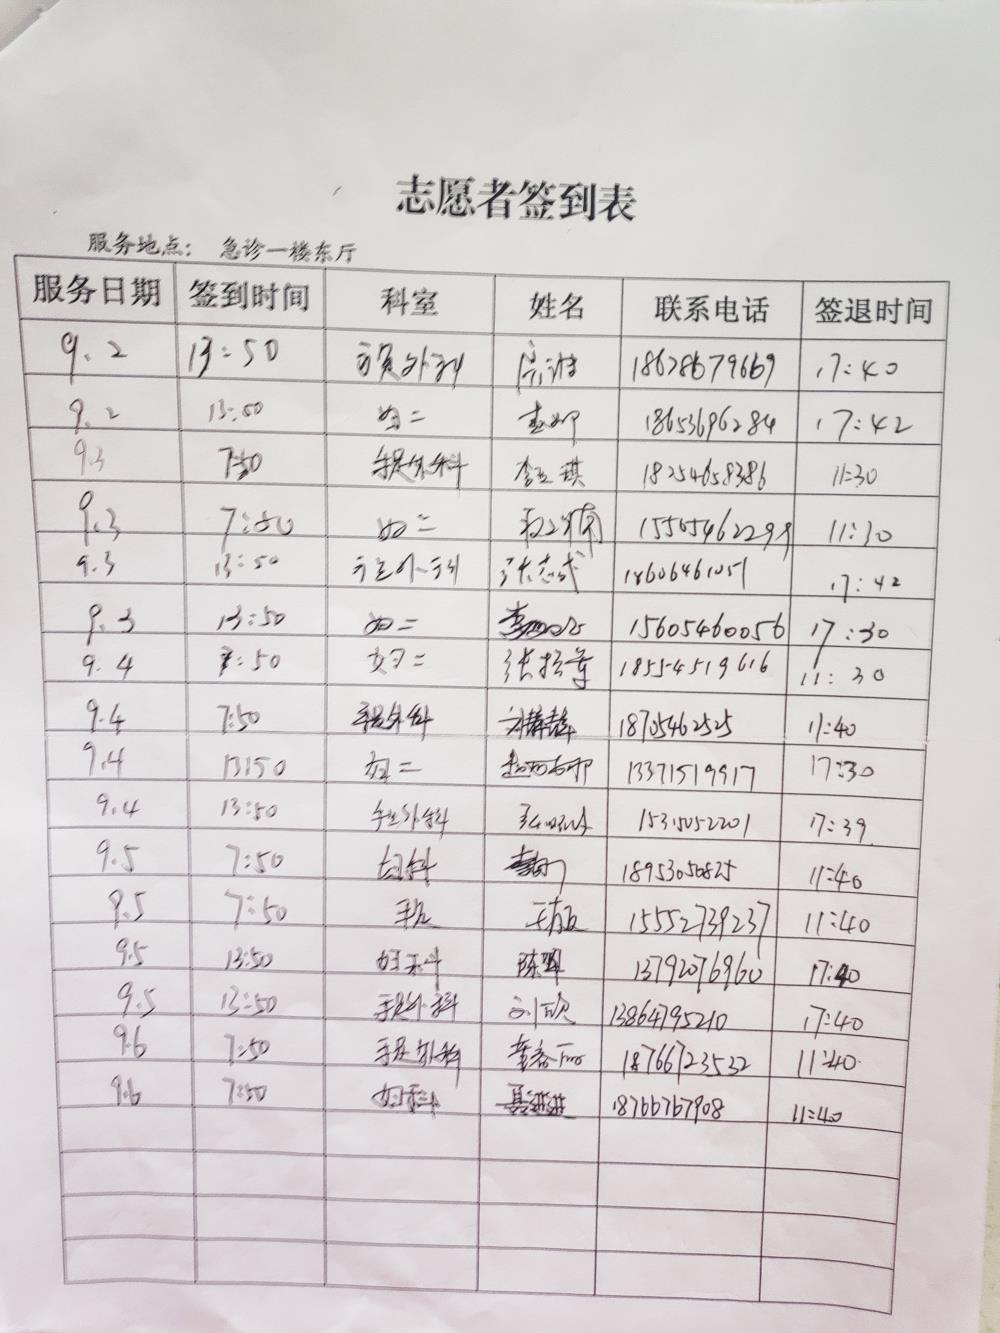 志愿者签到表
服务地点： 急诊一楼东厅
服务日期 签到时间 科室 姓名 联系电话 签退时间
9.2 13:50 手足外科 18678679669 17:40
9.2 13:50 妇二 18653696284 17:42
9.3 7:50 手足外科 李亚琪 18254658386 11:30
9.3 7:50 妇二 15505462299 11:30
9.3 13:50 手足外科 张志成 18606461051 17:42
9.3 13:50 妇二 15605460056 17:30
9.4 7:50 妇二 18554519616 11:30
9.4 7:50 手足外科 刘静静 18705462525 11:40
9.4 13:50 妇二 13371519917 17:30
9.4 13:50 手足外科 15315052201 17:39
9.5 7:50 妇科 18953050825 11:40
9.5 7:50 手足 15552739237 11:40
9.5 13:50 妇三科 陈 13792076960 17:40
9.5 13:50 手足外科 刘欣 13864795210 17:40
9.6 7:50 手足外科 18766723532 11:40
9.6 7:50 妇科 18766767908 11:40